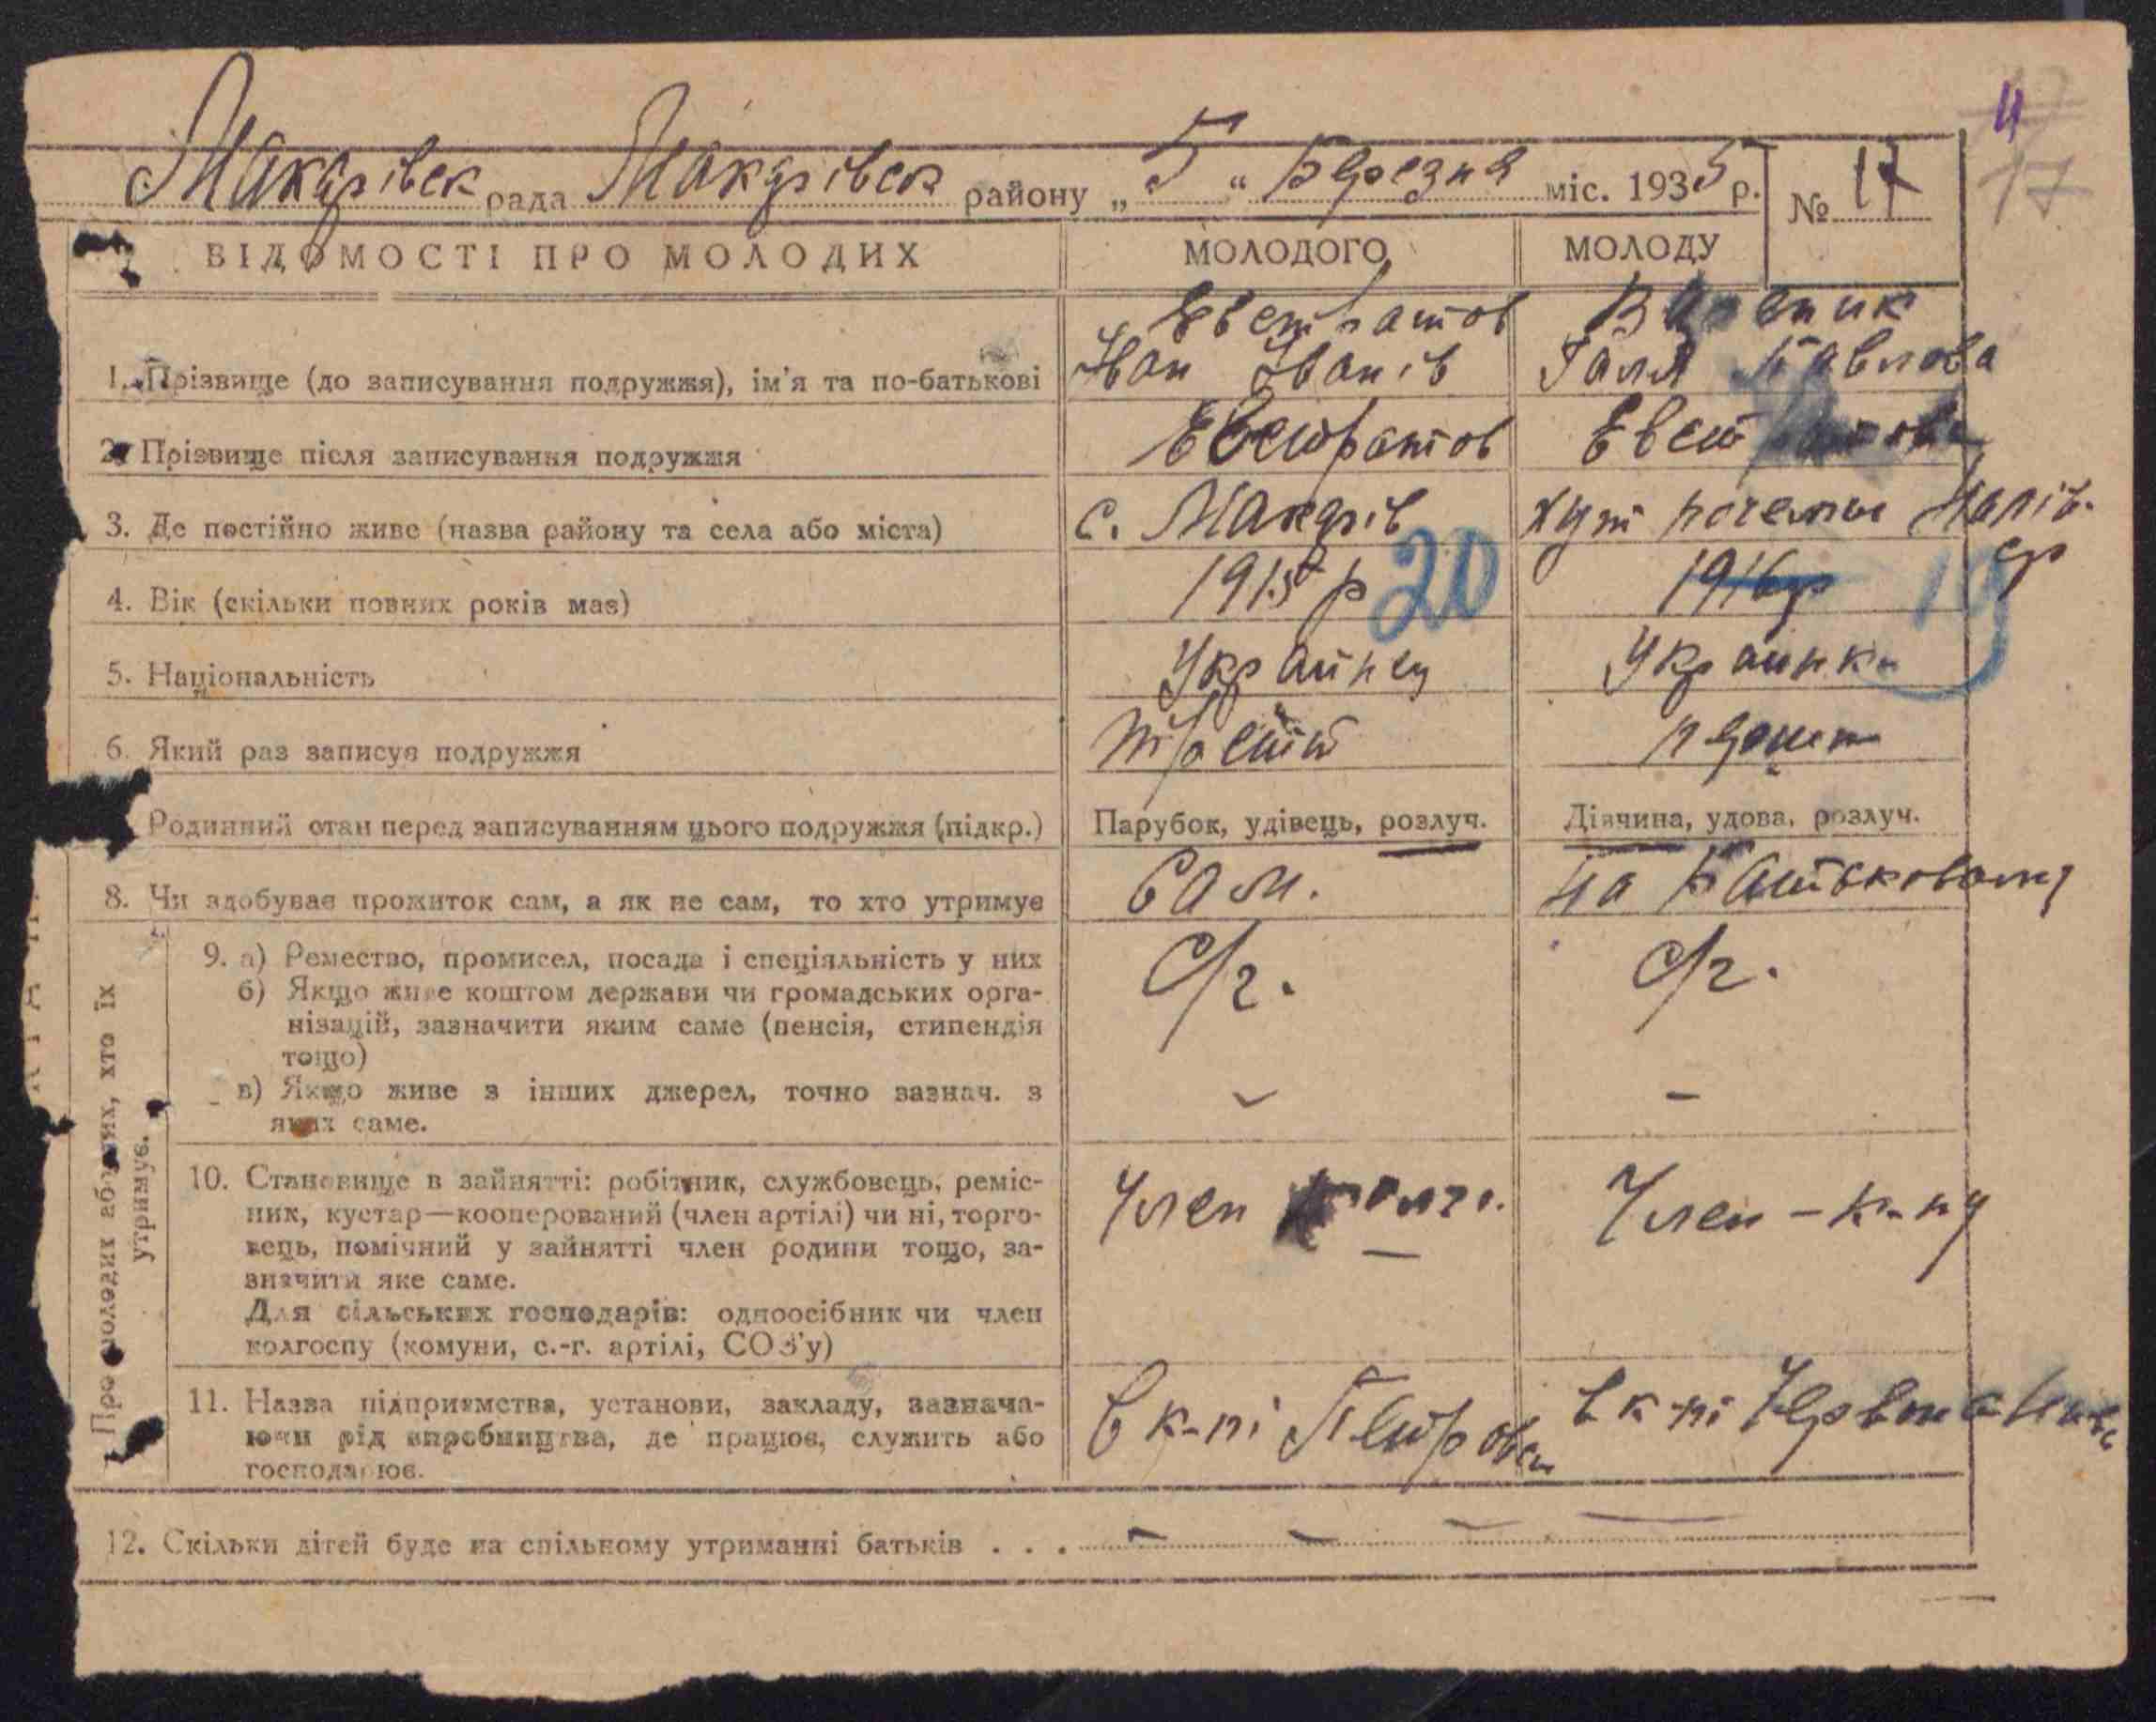 4
17
Макарівск рада Макарівск району „5“ Березня міс. 1935 р. № 17
ВІДОМОСТІ ПРО МОЛОДИХ МОЛОДОГО МОЛОДУ
Евстратов
Іван Іванів Галя Павлова
1. Прізвище (до записування подружжя), ім'я та по-батькові
2. Прізвище після записування подружжя Евстратов Евстратова
3. Де постійно живе (назва району та села або міста) с. Макарів хут
4. Вік (скільки повних років має) 1915 р 20 1916 р 19
5. Національність Украинец Украинка
6. Який раз записує подружжя третий
Родинний стан перед записуванням цього подружжя (підкр.) Парубок, удівець, розлуч. Дівчина, удова, розлуч.
8. Чи здобуває прожиток сам, а як не сам, то хто утримує Сам. на
Про молодих або них, хто їх
утримує.
9. а) Ремество, промисел, посада і спеціяльність у них С/г. С/г.
б) Якщо живе коштом держави чи громадських орга-
нізацій, зазначити яким саме (пенсія, стипендія
тощо)
в) Якщо живе з інших джерел, точно зазнач. з – –
яких саме.
10. Становище в зайнятті: робітник, службовець, реміс-
ник, кустар—кооперований (член артілі) чи ні, торго- Член Член – к-пу
вець, помічний у зайнятті член родини тощо, за-
значити яке саме.
Для сільських господарів: одноосібник чи член
колгоспу (комуни, с.-г. артілі, СОЗ'у)
11. Назва підприємства, установи, закладу, зазнача- В к-пі Петровск В к-пі
ючи рід виробництва, де працює, служить або
господарює.
12. Скільки дітей буде на спільному утриманні батьків . . . – – – –